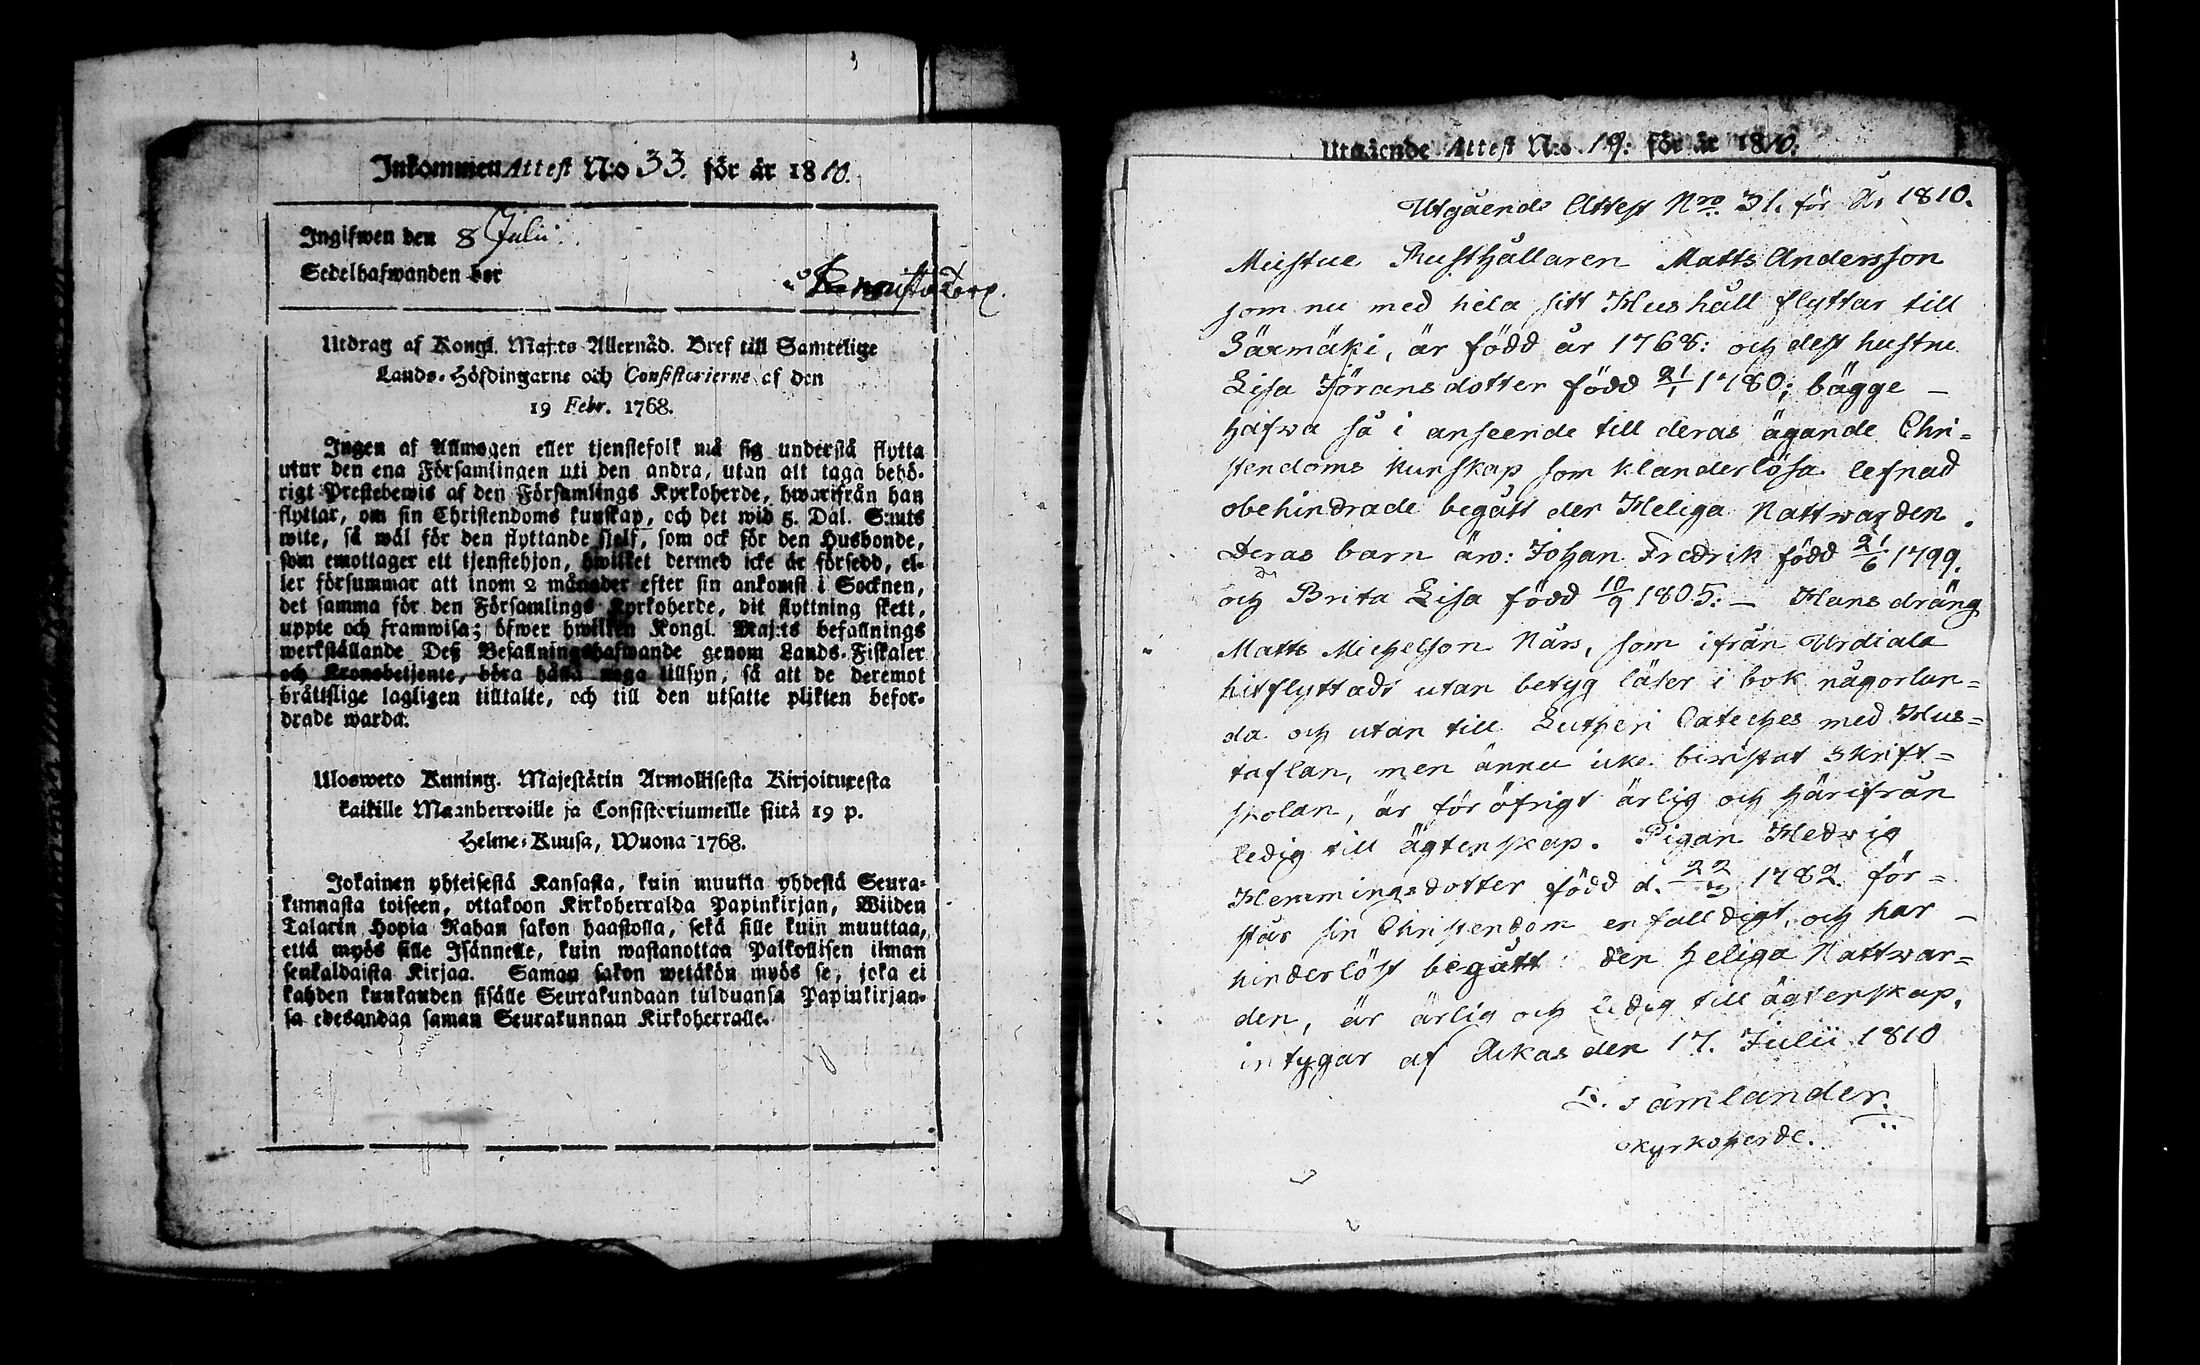 Inkommen Attest N:o 33. för år 1810.
Ingifwen den 8 Julii.
Sedelhafwanden bor
Utdrag af Kongl. Maj:ts Allernåd. Bref till Samtelige
Lands-Höfdingarne och Consistorierne af den
19 Febr. 1768.
Ingen af Allmogen eller tjenstefolk må sig understå flytta
utur den ena Församlingen uti den andra, utan att taga behö-
rigt Prestebewis af den Församlings Kyrkoherde, hwarifrån han
flyttar, om sin Christendoms kunskap, och det wid 5. Dal. S:mts
wite, så wäl för den flyttande sjelf, som ock för den Husbonde,
som emottager ett tjenstehjon, hwilket dermed icke är försedd, el-
ler försummar att inom 2 månader efter sin ankomst i Socknen,
det samma för den Församlings Kyrkoherde, dit flyttning skett,
uppte och framwisa; öfwer hwilken Kongl. Maj:ts befallnings
werkställande Deß Befallningshafwande genom Lands-Fiskaler
och Kronobetjente, böra hålla noga tillsyn, så att de deremot
brättslige lagligen tilltalte, och till den utsatte plikten befor-
drade warda.
Ulosweto Kuning. Majestätin Armollisesta Kirjoituxesta
kaikille Maanherroille ja Consistoriumeille siitä 19 p.
Helme-Kuusa, Wuona 1768.
Jokainen yhteisestä Kansasta, kuin muutta yhdestä Seura-
kunnasta toiseen, ottakoon Kirkoherralda Papinkirjan, Wiiden
Talarin Hopia Rahan sakon haastolla, sekä sille kuin muuttaa,
että myös sille Isännelle, kuin wastanottaa Palkollisen ilman
senkaldaista Kirjaa. Saman sakon wetäkön myös se, joka ei
kahden kuukauden sisälle Seurakundaan tulduansa Papinkirjan-
sa edesandaa saman Seurakunnan Kirkoherralle.
Utgående Attest N:o 19: för år 1810.
Utgående Attest Nro 31. för År 1810.
Rusthållaren Matts Andersson
som nu med hela sitt Hushåll flyttar till
Särmäki, är född år 1768: och dess hustru
Lisa Jöransdotter född 21/1 1780; bägge –
hafwa så i anseende till deras ägande Chri=
stendoms kunskap som klanderlösa lefnad
obehindrade begått den Heliga Nattwarden.
Deras barn äro: Johan Fredrik född 21/6 1799.
och Brita Lisa född 10/9 1805: – Hans dräng
Matts Michelsson Närs, som ifrån Urdiala
hitflyttade utan betyg läser i bok någorlun=
da och utan till Lutheri Cateches med Hus=
taflan, men ännu icke biwistat Skrift=
skolan, är för öfrigt ärlig och härifrån
ledig till ägtenskap. Pigan Hedwig
Hemmingsdotter född d. 22/3 1782 för=
står sin Christendom enfalldigt, och har –
hinderlöst begått den heliga Nattwar=
den, är ärlig och ledig till ägtenskap,
intygar af Ackas den 17. Julii 1810
Sämlander.
Kyrkoherde.